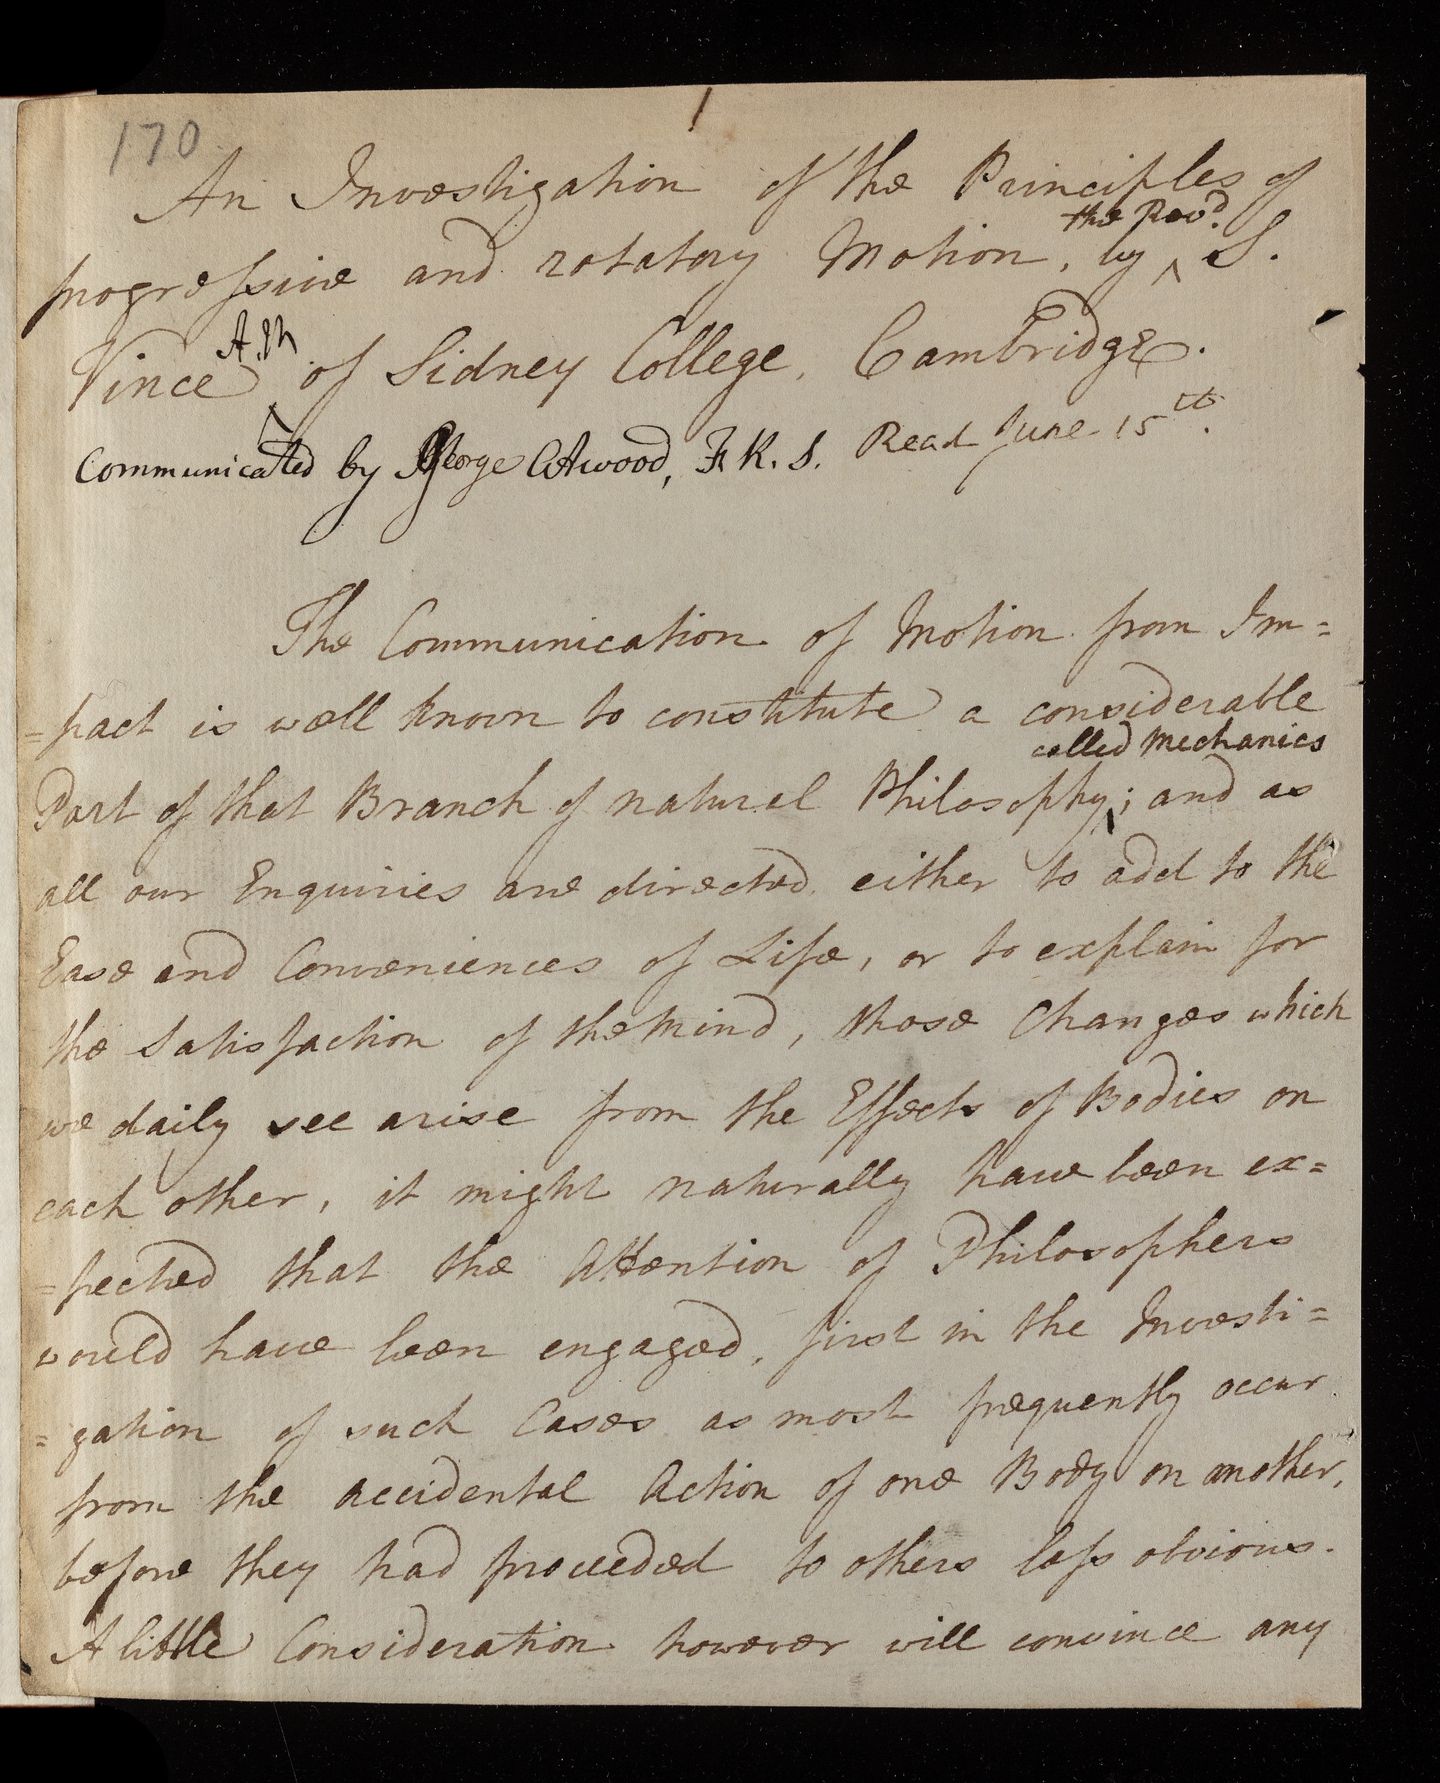 170
1
An Investigation of the Principles of
the Rev.d
progressive and rotatory Motion, by ^ S.
A.M
Vince of Sidney College, Cambridge.
Communicated by George Atwood, F.R.S. Read June 15th.
The Communication of Motion from Im=
=pact is well known to constitute a considerable
called Mechanics
Part of that Branch of natural Philosophy; and as
all our Enquiries are directed either to add to the
Ease and Conveniences of Life, or to explain for
the Satisfaction of the Mind, those Changes which
we daily see arise from the Effects of Bodies on
each other, it might naturally have been ex=
=pected that the Attention of Philosophers
would have been engaged, first in the Investi=
=gation of such Cases as most frequently occur
from the accidental Action of one Body on another,
before they had proceeded to others less obvious.
A little Consideration however will convince any